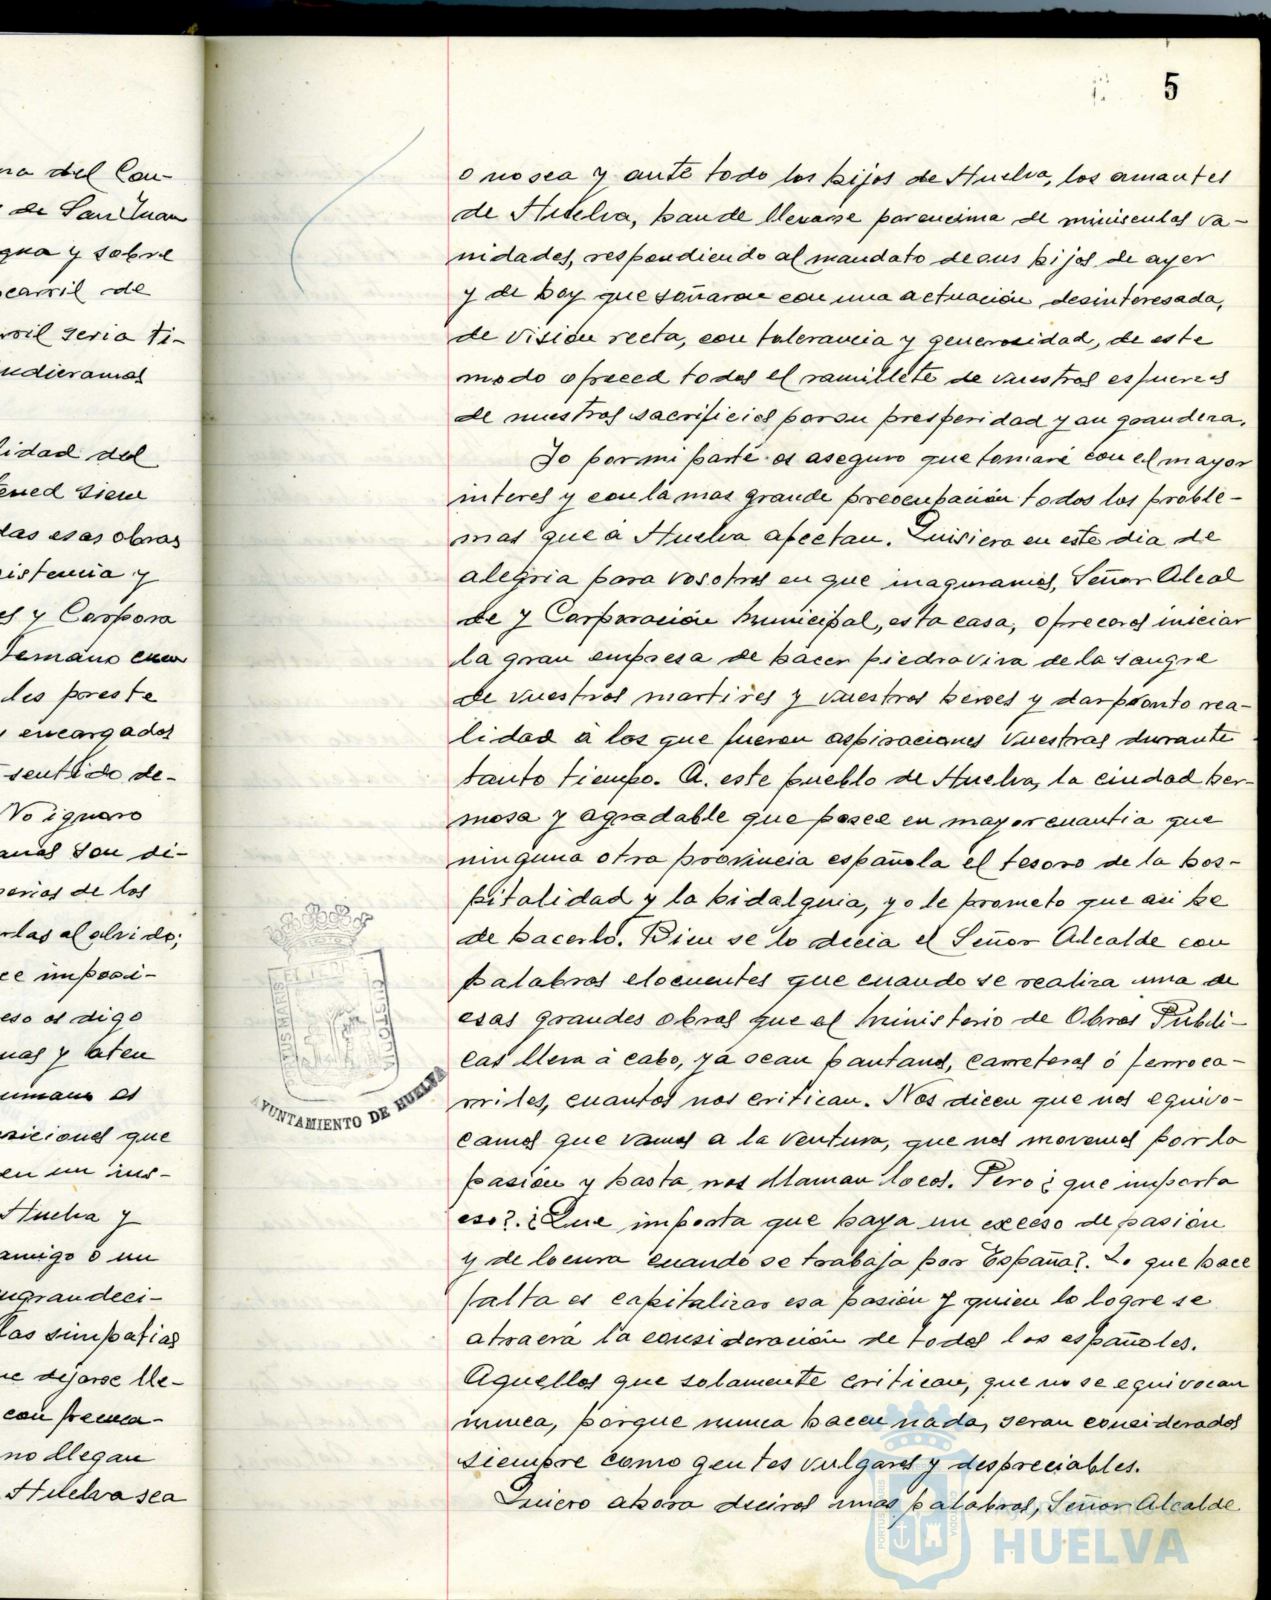 na del Con-
de San Juan
gua y sobre
ocarril de
rril seria ti-
udieramos
lidad del
tened siem
das esas obras
sistencia y
es y Corpora
temano cuan
les preste
y encargados
sentido de-
No ignoro
anas son di-
erias de los
rlas al olvido;
ce imposi-
eso os digo
nas y aten
umano es
siciones que
en un ins-
Huelva y
amigo o un
ngrandeci-
las simpatias
ue dejarse lle-
con frecuen-
no llegan
Huelva sea
5
o no sea y ante todo los hijos de Huelva, los amantes
de Huelva, han de llevarse por encima de minisculas va-
nidades, respondiendo al mandato de sus hijos de ayer
y de hoy que soñaron con una actuación desinteresada,
de vision recta, con tolerancia y generosidad, de este
modo ofreced todos el ramillete de vuestros esfuerzos
de nuestros sacrificios por su presperidad y su grandeza.
Yo por mi parte os aseguro que tomaré con el mayor
interes y con la mas grande preocupación todos los proble-
mas que á Huelva afectan. Quisiera en este dia de
alegria para vosotros en que inaguramos, Señor Alcal
de y Corporación Municipal, esta casa, ofreceros iniciar
la gran empresa de hacer piedra viva de la sangre
de vuestros martires y vuestros heroes y dar pronto rea-
lidad á los que fueron aspiraciones vuestras durante
tanto tiempo. A. este pueblo de Huelva, la ciudad her-
mosa y agradable que posee en mayor cuantia que
ninguna otra provincia española el tesoro de la hos-
pitalidad y la hidalguia, yo le prometo que asi he
de hacerlo. Bien se lo decia el Señor Alcalde con
palabras elocuentes que cuando se realiza una de
esas grandes obras que el Ministerio de Obras Públi-
cas lleva á cabo, ya sean pantanos, carreteras ó ferroca-
rriles, cuantos nos critican. Nos dicen que nos equivo-
camos que vamos a la ventura, que nos movemos por la
pasión y hasta nos llaman locos. Pero ¿que importa
eso?. ¿Que importa que haya un exceso de pasión
y de locura cuando se trabaja por España?. Lo que hace
falta es capitalizar esa pasión y quien lo logre se
atraerá la consideración de todos los españoles.
Aquellos que solamente critican, que no se equivocan
nunca, porque nunca hacen nada, seran considerados
siempre como gentes vulgares y despreciables.
Quiero ahora deciros unas palabras, Señor Alcalde
AYUNTAMIENTO DE HUELVA
HUELVA